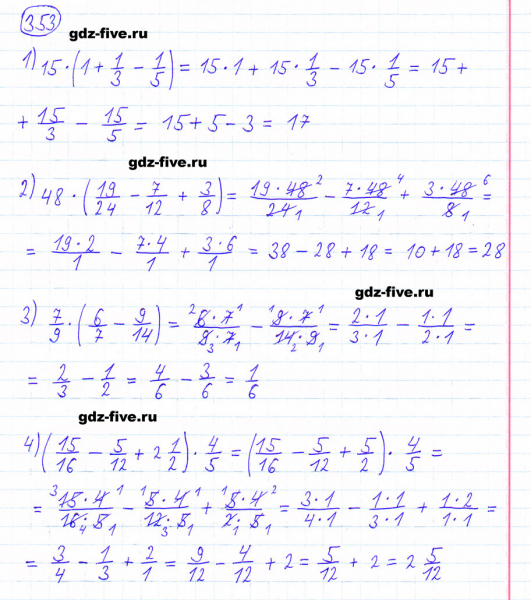 353
gdz-five.ru
1) 15·(1+1/3−1/5)=15·1+15·1/3−15·1/5=15+
+15/3−15/5=15+5−3=17
gdz-five.ru
2) 48·(19/24−7/12+3/8)=19·48 2/24 1−7·48 4/12 1+3·48 6/8 1=
=19·2/1−7·4/1+3·6/1=38−28+18=10+18=28
gdz-five.ru
3) 7/9·(6/7−9/14)=2 6·7 1/9 3·7 1−1 9·7 1/14 2·9 1=2·1/3·1−1·1/2·1=
=2/3−1/2=4/6−3/6=1/6
gdz-five.ru
4) (15/16−5/12+2 1/2)·4/5=(15/16−5/12+5/2)·4/5=
=3 15·4 1/16 4·5 1−1 5·4 1/12 3·5 1+1 5·4 2/2 1·5 1=3·1/4·1−1·1/3·1+1·2/1·1=
=3/4−1/3+2/1=9/12−4/12+2=5/12+2=2 5/12